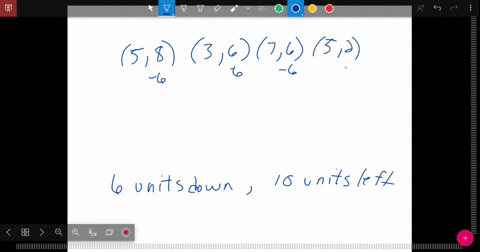 (5,8) (3,6) (7,6) (5,2)
-6 -6 -6
6 units down, 10 units left